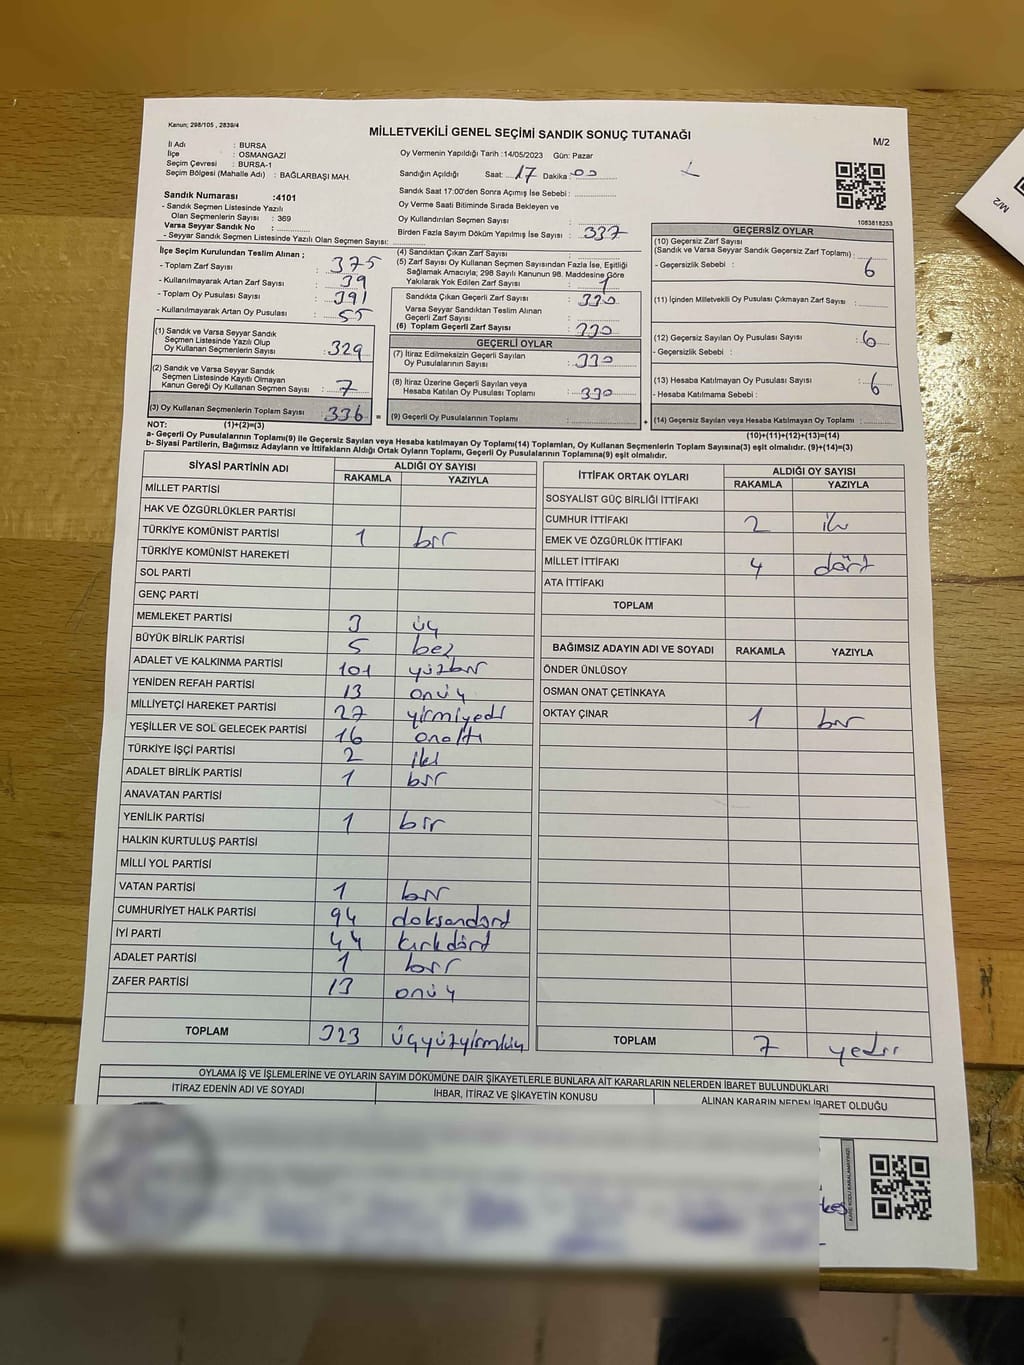 Kanun; 298/105 , 2839/4
MİLLETVEKİLİ GENEL SEÇİMİ SANDIK SONUÇ TUTANAĞI
M/2
İl Adı : BURSA
İlçe : OSMANGAZİ
Seçim Çevresi : BURSA-1
Seçim Bölgesi (Mahalle Adı) : BAĞLARBAŞI MAH.
Oy Vermenin Yapıldığı Tarih :14/05/2023 Gün: Pazar
Sandığın Açıldığı Saat: 17 Dakika : 00
Sandık Saat 17:00'den Sonra Açımış İse Sebebi :
Oy Verme Saati Bitiminde Sırada Bekleyen ve
Oy Kullandırılan Seçmen Sayısı :
Birden Fazla Sayım Döküm Yapılmış İse Sayısı : 337
1083818253
Sandık Numarası :4101
- Sandık Seçmen Listesinde Yazılı
Olan Seçmenlerin Sayısı : 369
Varsa Seyyar Sandık No :
- Seyyar Sandık Seçmen Listesinde Yazılı Olan Seçmen Sayısı:
İlçe Seçim Kurulundan Teslim Alınan ;
- Toplam Zarf Sayısı : 375
- Kullanılmayarak Artan Zarf Sayısı : 39
- Toplam Oy Pusulası Sayısı : 391
- Kullanılmayarak Artan Oy Pusulası : 55
(1) Sandık ve Varsa Seyyar Sandık
Seçmen Listesinde Yazılı Olup
Oy Kullanan Seçmenlerin Sayısı : 329
(2) Sandık ve Varsa Seyyar Sandık
Seçmen Listesinde Kayıtlı Olmayan
Kanun Gereği Oy Kullanan Seçmen Sayısı : 7
(3) Oy Kullanan Seçmenlerin Toplam Sayısı : 336 =
(4) Sandıktan Çıkan Zarf Sayısı :
(5) Zarf Sayısı Oy Kullanan Seçmen Sayısından Fazla İse, Eşitliği
Sağlamak Amacıyla; 298 Sayılı Kanunun 98. Maddesine Göre
Yakılarak Yok Edilen Zarf Sayısı : 1
Sandıkta Çıkan Geçerli Zarf Sayısı : 330
Varsa Seyyar Sandıktan Teslim Alınan
Geçerli Zarf Sayısı :
(6) Toplam Geçerli Zarf Sayısı : 330
GEÇERLİ OYLAR
(7) İtiraz Edilmeksizin Geçerli Sayılan
Oy Pusulalarının Sayısı : 330
(8) İtiraz Üzerine Geçerli Sayılan veya
Hesaba Katılan Oy Pusulası Toplamı : 330
(9) Geçerli Oy Pusulalarının Toplamı : +
GEÇERSİZ OYLAR
(10) Geçersiz Zarf Sayısı
(Sandık ve Varsa Seyyar Sandık Geçersiz Zarf Toplamı) :
- Geçersizlik Sebebi : 6
(11) İçinden Milletvekili Oy Pusulası Çıkmayan Zarf Sayısı :
(12) Geçersiz Sayılan Oy Pusulası Sayısı : 6
- Geçersizlik Sebebi :
(13) Hesaba Katılmayan Oy Pusulası Sayısı : 6
- Hesaba Katılmama Sebebi :
(14) Geçersiz Sayılan veya Hesaba Katılmayan Oy Pusulası Toplamı :
NOT: (1)+(2)=(3) (10)+(11)+(12)+(13)=(14)
a- Geçerli Oy Pusulalarının Toplamı(9) ile Geçersiz Sayılan veya Hesaba katılmayan Oy Toplamı(14) Toplamları, Oy Kullanan Seçmenlerin Toplam Sayısına(3) eşit olmalıdır. (9)+(14)=(3)
b- Siyasi Partilerin, Bağımsız Adayların ve İttifakların Aldığı Ortak Oyların Toplamı, Geçerli Oy Pusulalarının Toplamına(9) eşit olmalıdır.
SİYASİ PARTİNİN ADI ALDIĞI OY SAYISI
RAKAMLA YAZIYLA
MİLLET PARTİSİ
HAK VE ÖZGÜRLÜKLER PARTİSİ
TÜRKİYE KOMÜNİST PARTİSİ 1 bir
TÜRKİYE KOMÜNİST HAREKETİ
SOL PARTİ
GENÇ PARTİ
MEMLEKET PARTİSİ 3 üç
BÜYÜK BİRLİK PARTİSİ 5 beş
ADALET VE KALKINMA PARTİSİ 101 yüzbir
YENİDEN REFAH PARTİSİ 13 onüç
MİLLİYETÇİ HAREKET PARTİSİ 27 yirmiyedi
YEŞİLLER VE SOL GELECEK PARTİSİ 16 onaltı
TÜRKİYE İŞÇİ PARTİSİ 2 iki
ADALET BİRLİK PARTİSİ 1 bir
ANAVATAN PARTİSİ
YENİLİK PARTİSİ 1 bir
HALKIN KURTULUŞ PARTİSİ
MİLLİ YOL PARTİSİ
VATAN PARTİSİ 1 bir
CUMHURİYET HALK PARTİSİ 94 doksandört
İYİ PARTİ 44 kırkdört
ADALET PARTİSİ 1 bir
ZAFER PARTİSİ 13 onüç
TOPLAM 323 üçyüzyirmiüç
İTTİFAK ORTAK OYLARI ALDIĞI OY SAYISI
RAKAMLA YAZIYLA
SOSYALİST GÜÇ BİRLİĞİ İTTİFAKI
CUMHUR İTTİFAKI 2 iki
EMEK VE ÖZGÜRLÜK İTTİFAKI
MİLLET İTTİFAKI 4 dört
ATA İTTİFAKI
TOPLAM
BAĞIMSIZ ADAYIN ADI VE SOYADI RAKAMLA YAZIYLA
ÖNDER ÜNLÜSOY
OSMAN ONAT ÇETİNKAYA
OKTAY ÇINAR 1 bir
TOPLAM 7 yedi
OYLAMA İŞ VE İŞLEMLERİNE VE OYLARIN SAYIM DÖKÜMÜNE DAİR ŞİKAYETLERLE BUNLARA AİT KARARLARIN NELERDEN İBARET BULUNDUKLARI
İTİRAZ EDENİN ADI VE SOYADI İHBAR, İTİRAZ VE ŞİKAYETİN KONUSU ALINAN KARARIN NEDEN İBARET OLDUĞU
KARE KODU KARALAMAYINIZ!
M/2